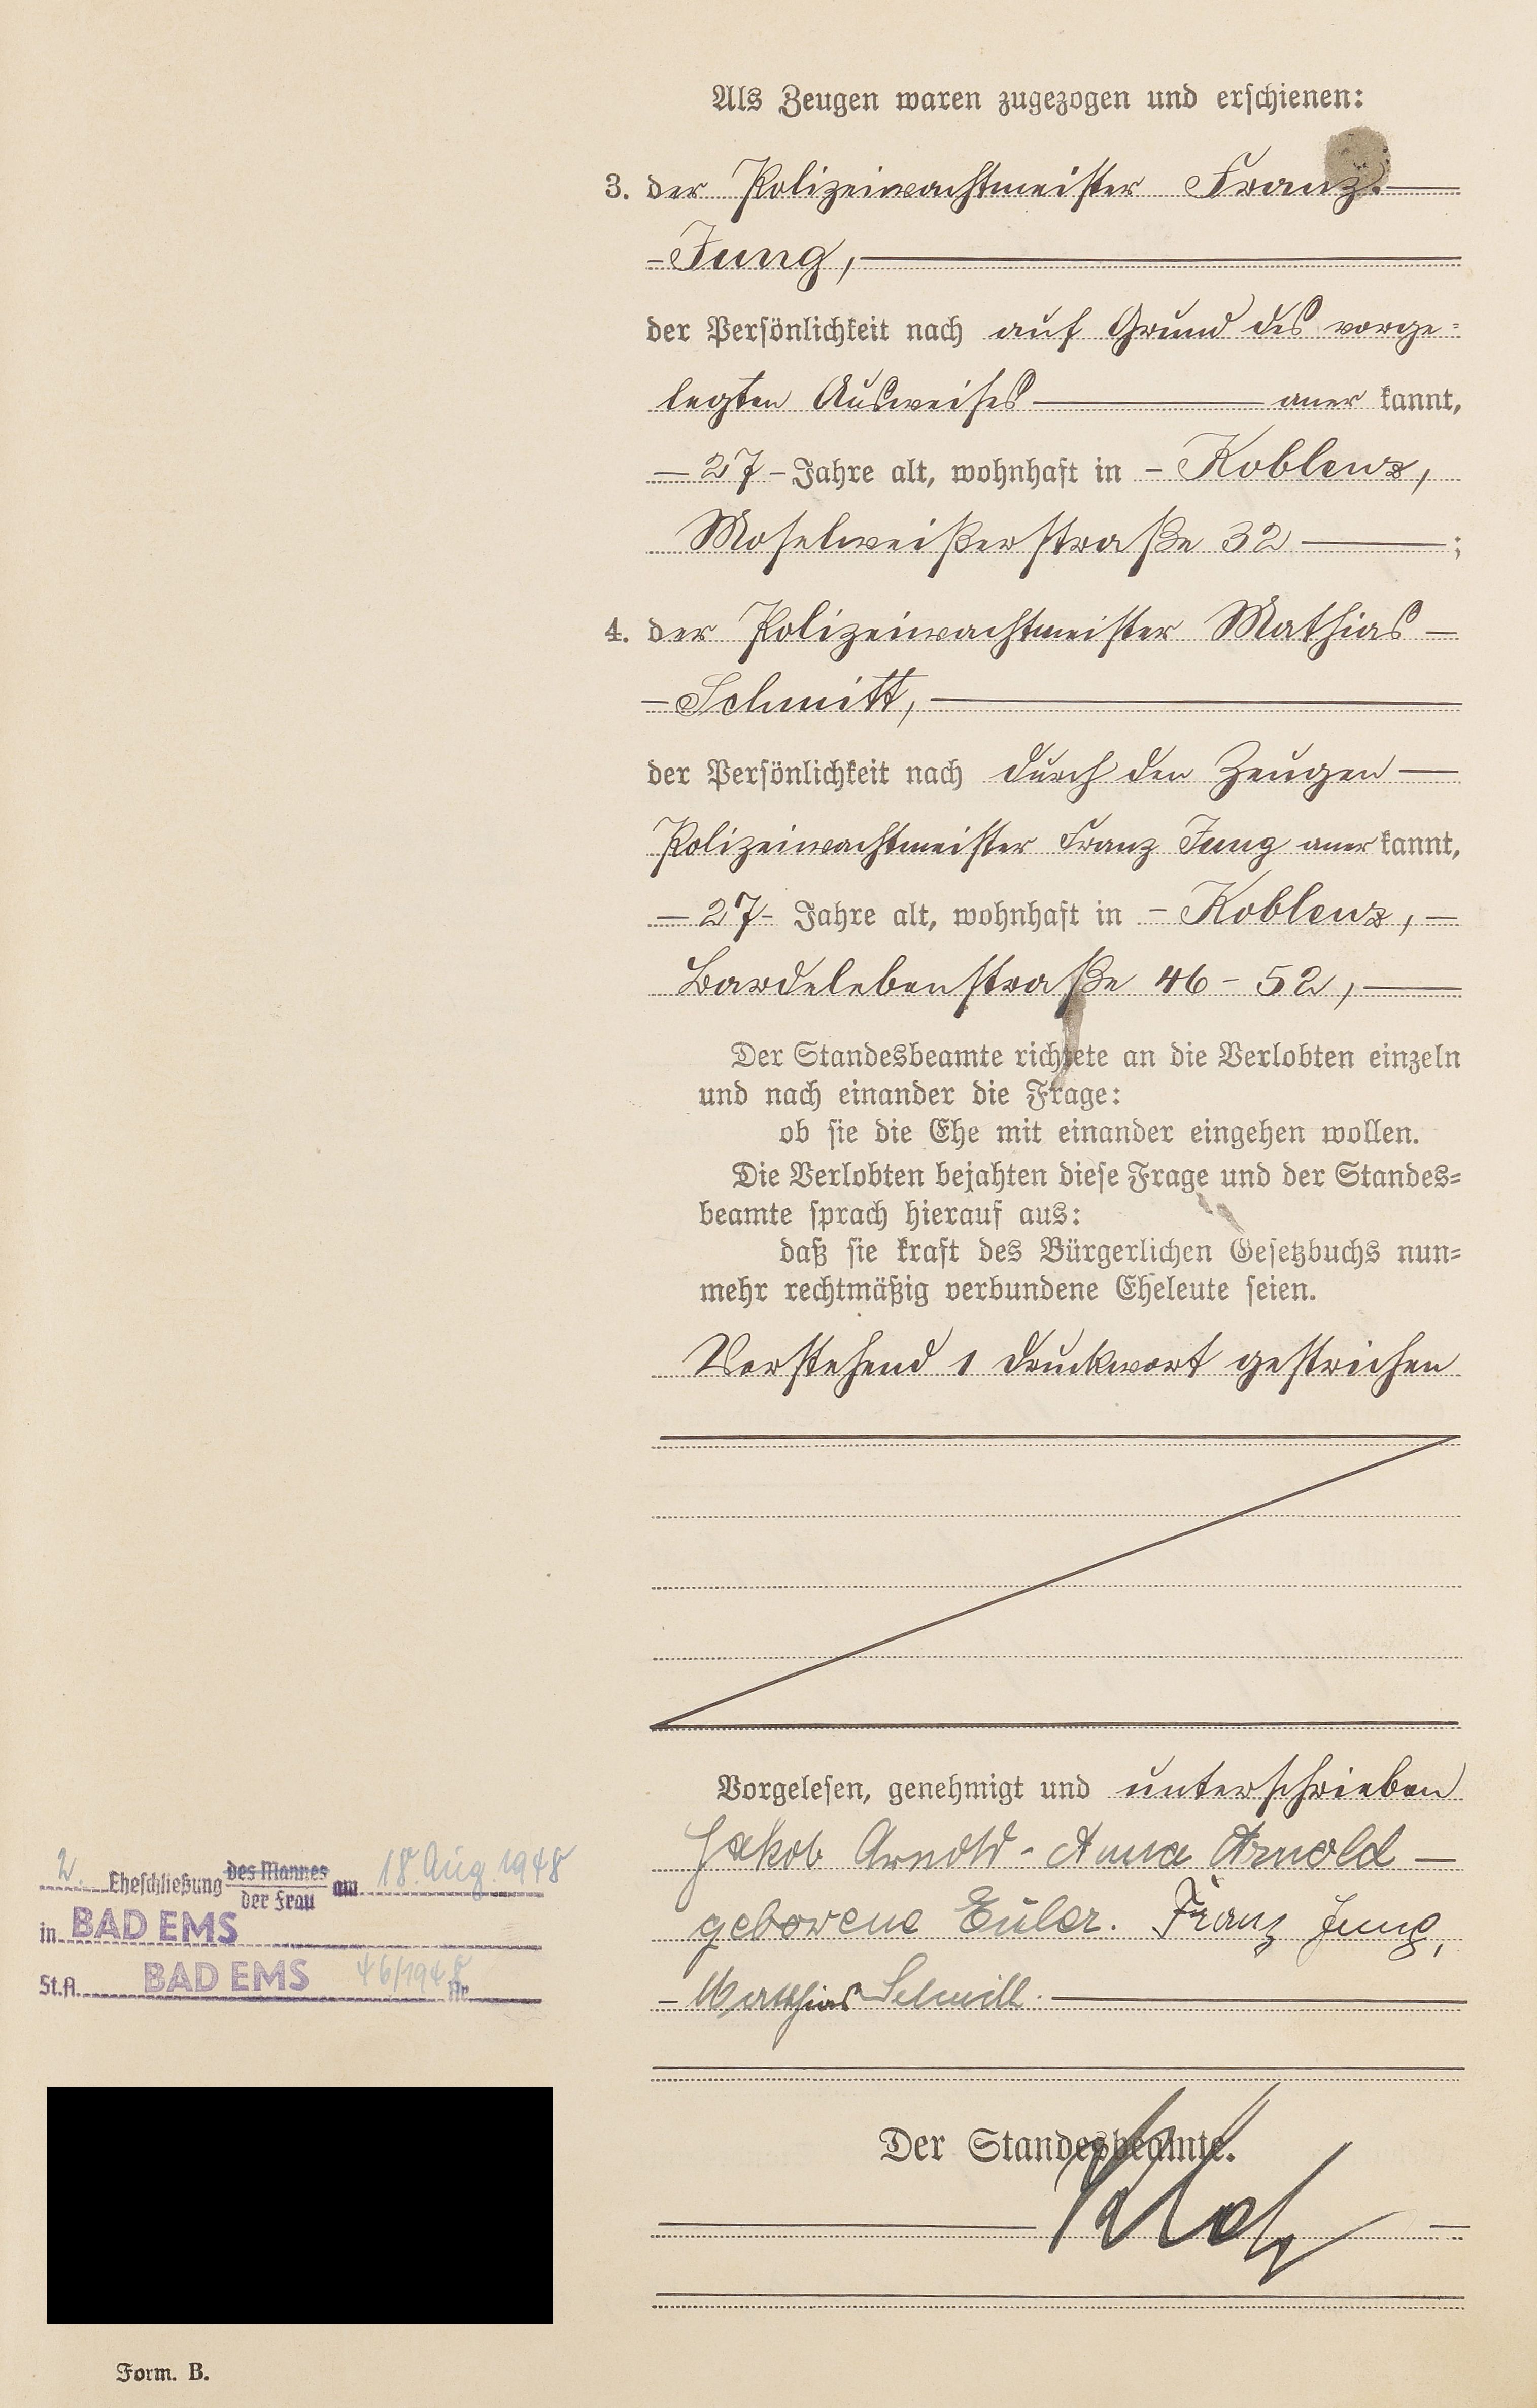 Als Zeugen waren zugezogen und erschienen:
3. der Polizeiwachtmeister Franz
Jung,
der Persönlichkeit nach auf Grund des vorge=
legten Ausweises aner kannt,
27 Jahre alt, wohnhaft in Koblenz,
Moselweißerstraße 32 ;
4. der Polizeiwachtmeister Mathias
Schmitt,
der Persönlichkeit nach durch den Zeugen
Polizeiwachtmeister Franz Jung aner kannt,
27 Jahre alt, wohnhaft in Koblenz,
Bardelebenstraße 46 - 52,
Der Standesbeamte richtete an die Verlobten einzeln
und nach einander die Frage:
ob sie die Ehe mit einander eingehen wollen.
Die Verlobten bejahten diese Frage und der Standes=
beamte sprach hierauf aus:
daß sie kraft des Bürgerlichen Gesetzbuchs nun=
mehr rechtmäßig verbundene Eheleute seien.
Vorstehend 1 Druckwort gestrichen
Vorgelesen, genehmigt und unterschrieben
Jakob Arnold - Anna Arnold
geborene Euler. Franz Jung,
Matthias Schmitt.
Der Standesbeamte.
2. Eheschließung des Mannes
der Frau am 18. Aug. 1948
in BAD EMS
St.A. BAD EMS 46/1948 Nr.
Form. B.